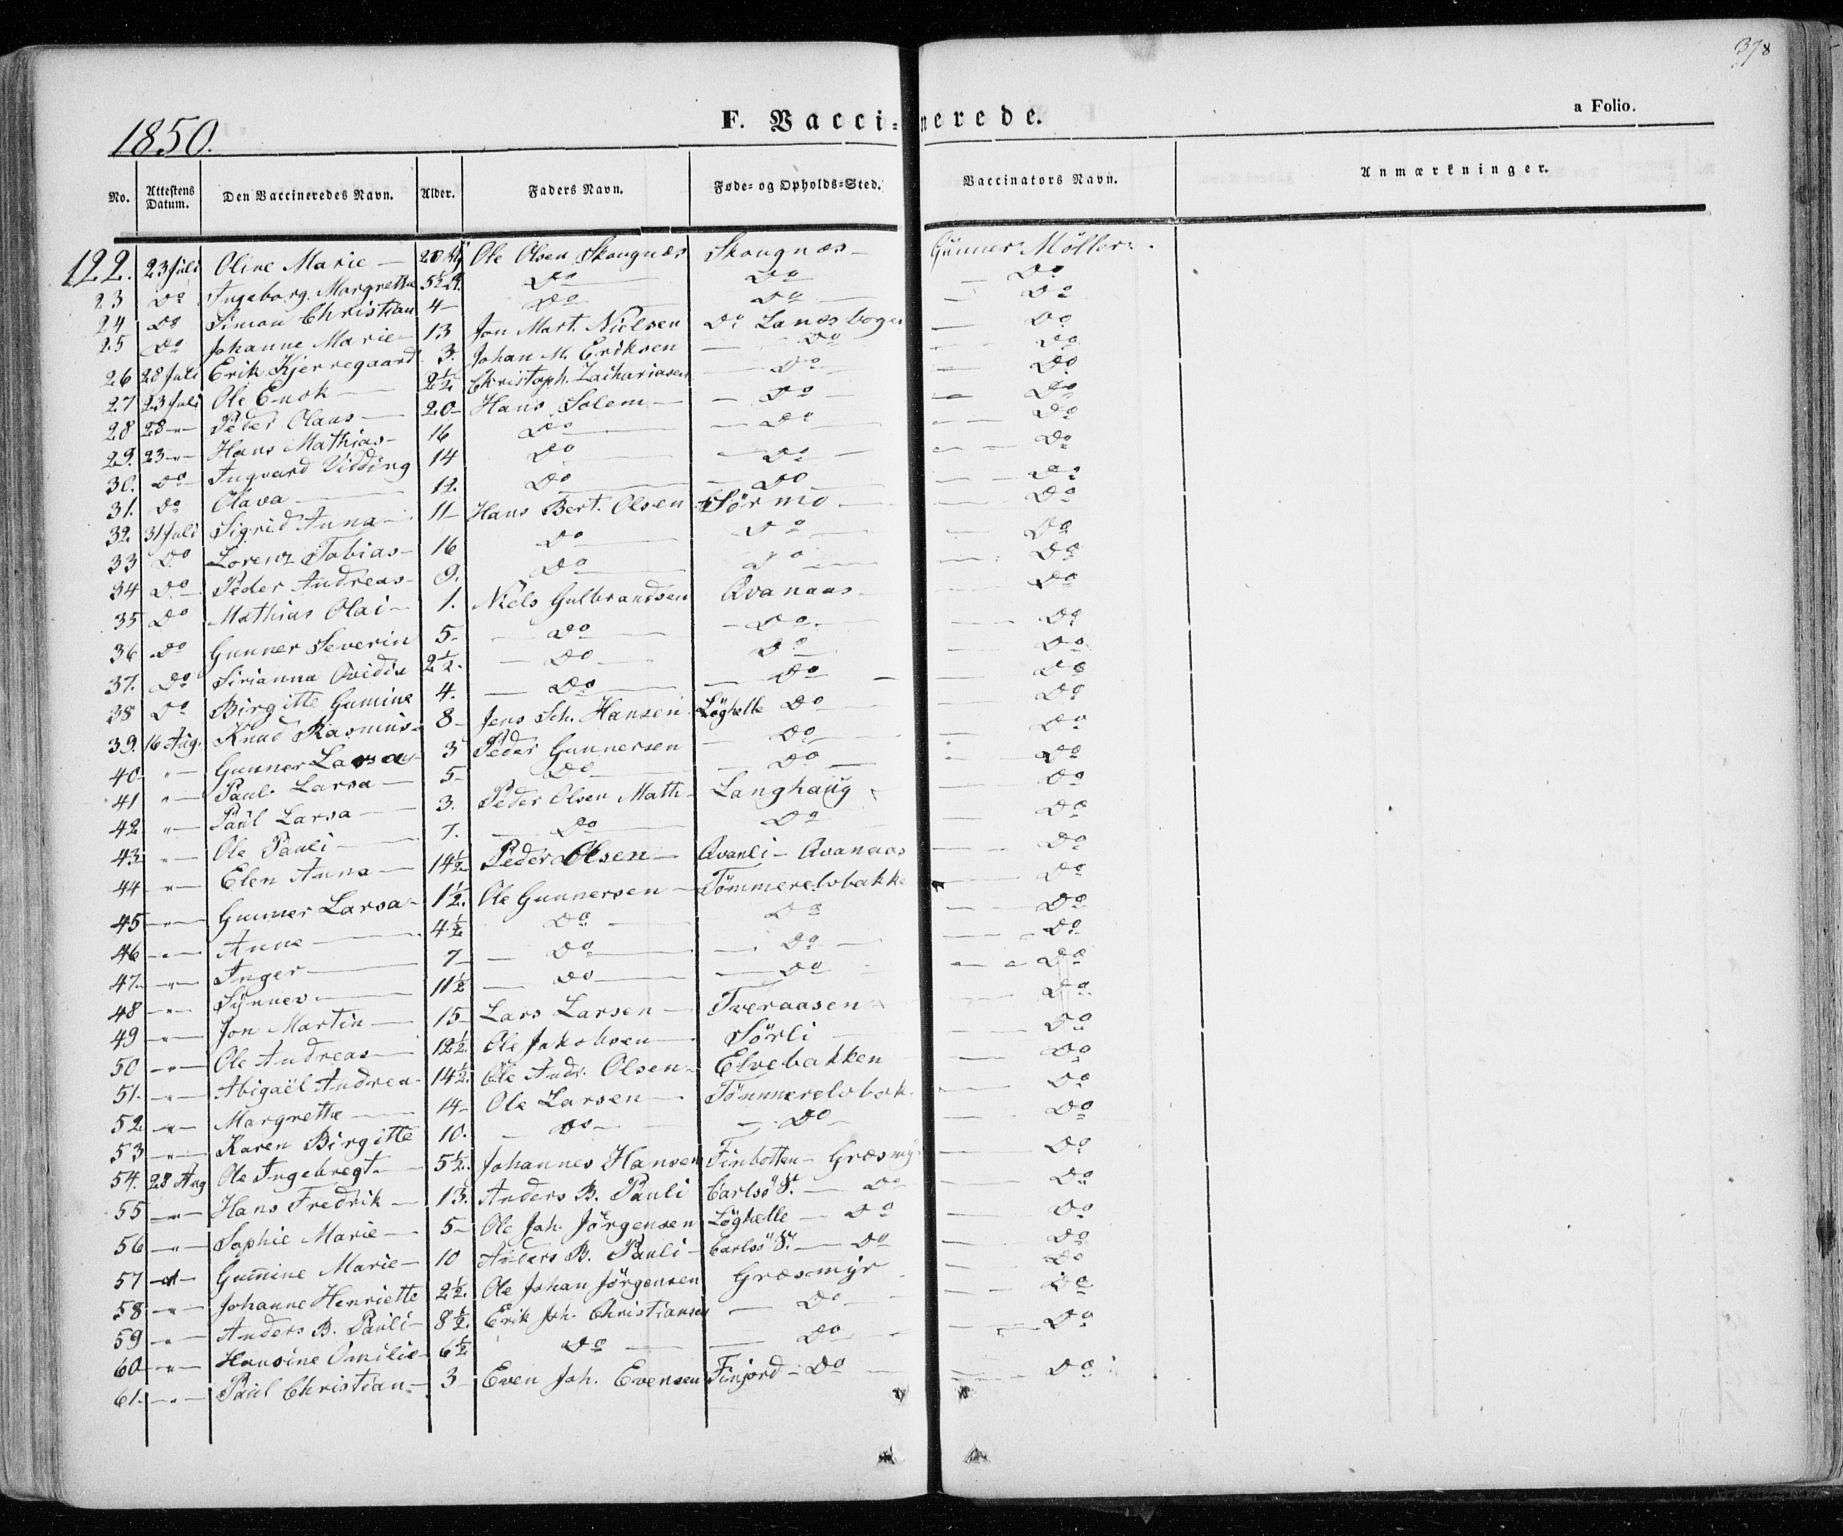 378
1850. F. Vaccinerede. a Folio.
No. Attestens Datum. Den Vaccineredes Navn. Alder. Faders Navn. Føde- og Opholds-Sted. Vaccinators Navn. Anmærkninger.
122. 23 Juli Oline Marie — Ole Olsen Skougnæs Skougnæs — Gunner Møller
23 Do Ingeborg Margrethe 5½ Do Do — Do
24 Do Simon Christian 4 — Do Do — Do
25 Do Johanne Marie — 13 Jon Mart. Nielsen Do — Do
26 28 Juli Erik Kjerregaard 3. Johan M. Eriksen — Do — Do
27 23 Juli Ole Enok — 2½ Christoph. Zachariasen — Do — Do
28 28 " Peder Olaus — 20 — Hans Solem — Do — Do
29. 23 " Hans Mathias — 16 Do — Do — Do
30. Do Ingvard Vidding 14 Do — Do — Do
31. Do Olava — 12 Do — Do — Do
32. 31 Juli Sigrid Anna — 11 — Hans Bert. Olsen Sørmo — Do
33 Do Lorenz Tobias — 16 Do Do — Do
34 Do Peder Andreas — 9. Do Do — Do
35 Do Mathias Olai — 1. Niels Gulbrandsen Qvanaas — Do
36 Do Gunner Severin 5 — Do — Do — Do
37. Do Sirianna Ovidia 2½. — Do — Do — Do
38 Do Birgitte Gumine 4. — Do — Do — Do
39. 16 Aug. Knud Rasmus — 8 — Jens Sch. Hansen Løghelle Do — Do
40 " Gunner Larsa 3 Peder Gunnersen — Do — Do
41 " Paul Larsa — 5 — Do — Do — Do
42 " Paul Larsa — 3. Peder Olsen Math — Langhaug — Do
43 " Ole Pauli — 7. — Do — Do — Do
44 " Elen Anna — 14½ Peder Olsen — Qvanli — Qvanaas — Do
45 " Gunner Larsa — 1½. Ole Gunnersen — Tømmerelvbakke — Do
46 " Anne — 4½ Do — Do — Do
47. " Inger — 7 — Do — Do — Do
48 " Synnev — 11½ — Do — Do — Do
49 " Jon Martin — 15 — Lars Larsen — Tveraasen — Do
50 " Ole Andreas — 12½. Ole Jakobsen — Sørli — Do
51. " Abigaël Andrea — 14½. Ole Andr. Olsen — Elvebakken — Do
52. " Margrethe — 14 — Ole Larsen — Tømmerelvbak. — Do
53 " Karen Birgitte 10. — Do — Do — Do
54. 28 Aug Ole Ingebregt — 5½. Johannes Hansen Finbotten — Græsmyr — Do
55 " Hans Fredrik — 13. Anders B. Pauli Carlsö S. — Do — Do
56 " Sophie Marie — 5 — Ole Joh. Jörgensen Løghelle — Do — Do
57 " Gumine Marie — 10 Anders B. Pauli — Carlsö S. — Do — Do
58 " Johanne Henriette 2½. Ole Johan Jörgensen Græsmyr — Do
59 " Anders B. Pauli — 8½. Erik Joh. Christiansen — Do — Do
60 " Hansine Omilie — 6½ Do — Do — Do
61. " Paul Christian — 3 — Even Joh. Evensen Finjord — Do — Do